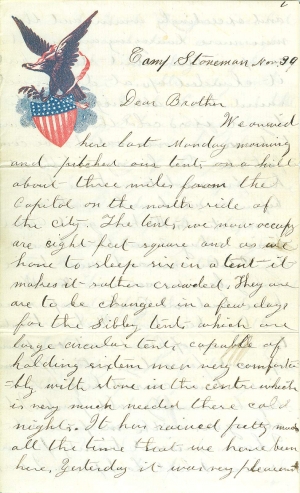 Camp Stoneman Nov, 29
Dear Brother
We arrived
here last Monday morning
and pitched our tents on a hill
about three miles from the
Capitol on the north side of
the city. The tents we now occupy
are eight feet square and as we
have to sleep six in a tent it
makes it rather crowded. They are
are to be changed in a few days
for the Sibley tent which are
large circular tents capable of
holding sixteen men very comforta-
-bly with stove in the centre which
is very much needed these cold
nights. It has rained pretty much
all the time that we have been
here, Yesterday it was very pleasant